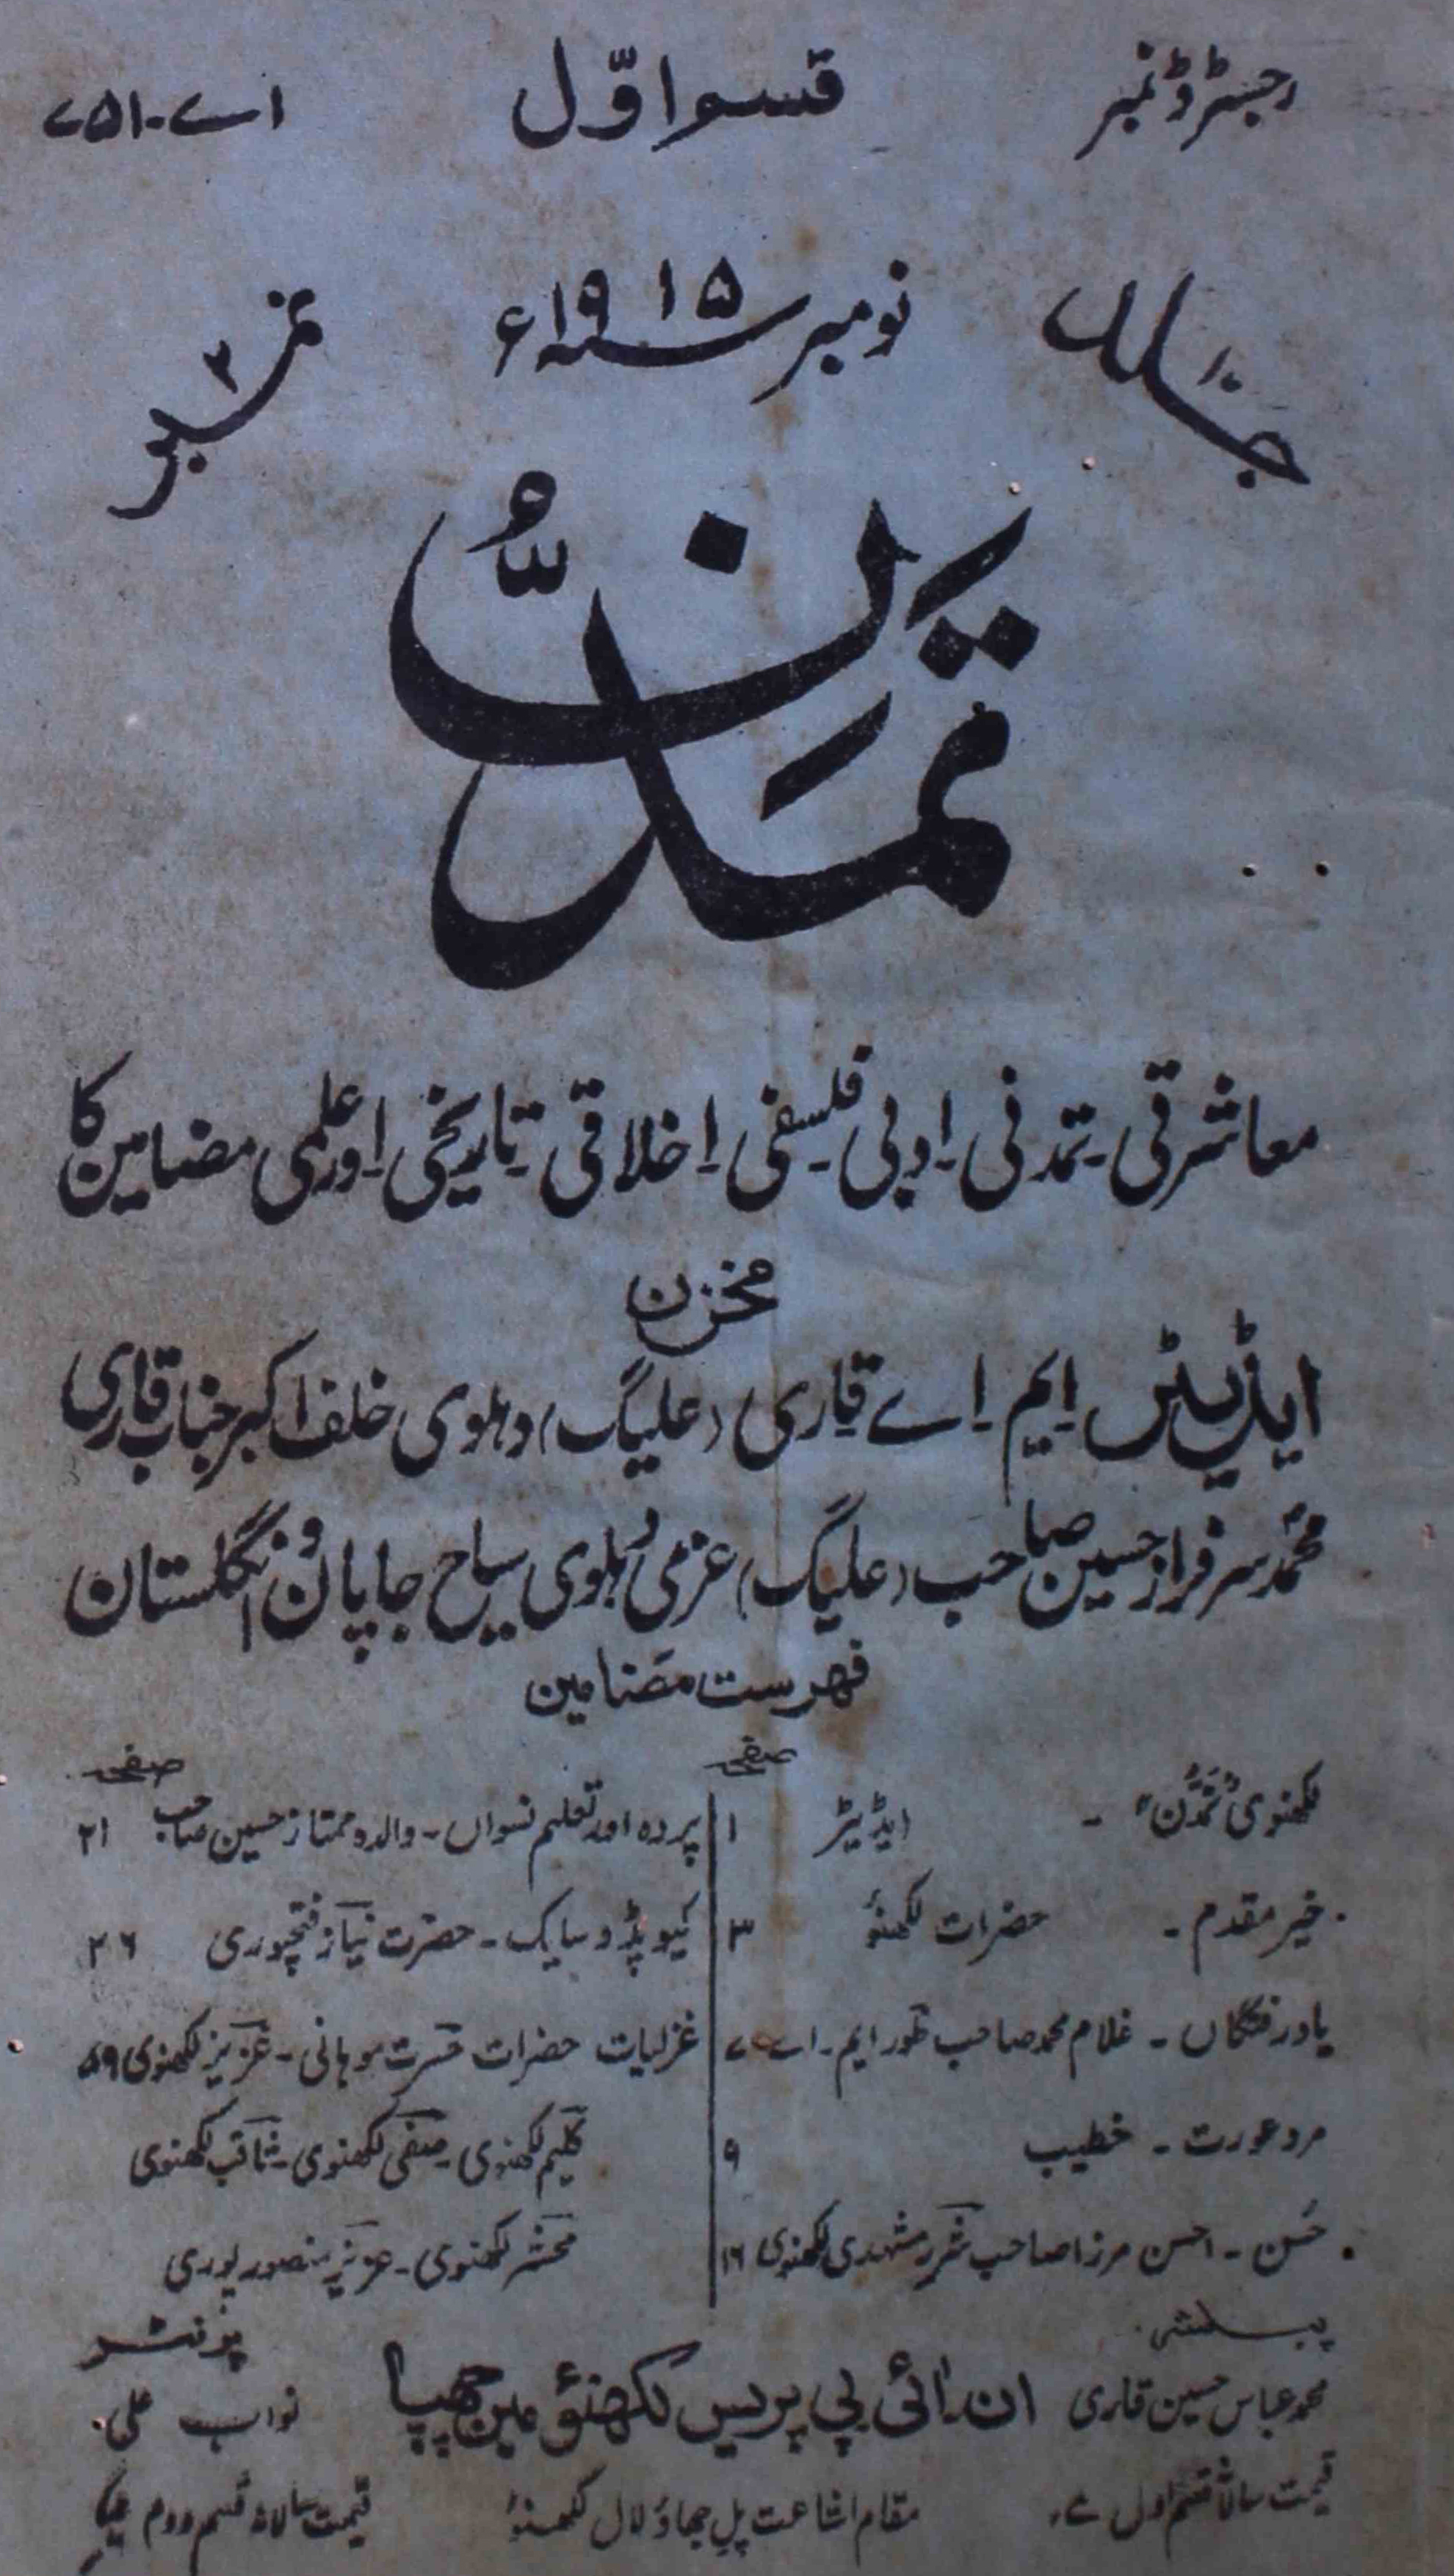 رجسٹرڈ نمبر قسم اوّل اے-۷۵۱
جلد ۱۰ نومبر سنہ ۱۹۱۵ء نمبر ۲
تمدّن
معاشرتی۔ تمدنی۔ ادبی۔ فلسفی۔ اخلاقی۔ تاریخی۔ اور علمی مضامین کا
مخزن
ایڈیٹر ایم۔ اے قاری (علیگ) دہلوی خلف اکبر جناب قاری
محمد سرفراز حسین صاحب (علیگ) عزمی دہلوی سیاح جاپان و انگلستان
فہرست مضامین
صفحہ
لکھنوی "تمدّن" - ایڈیٹر ۱
خیر مقدم - حضرات لکھنؤ ۳
یاد رفتگاں - غلام محمد صاحب طور ایم۔ اے ۷
مرد عورت - خطیب ۹
حُسن - احسن مرزا صاحب شرر مشہدی لکھنوی ۱۶
صفحہ
پردہ اور تعلیم نسواں - والدہ ممتاز حسین صاحب ۲۱
کیوپڈ و سایک - حضرت نیاز فتحپوری ۲۶
غزلیات حضرات حسرت موہانی - عزیز لکھنوی ۵۹
کلیم لکھنوی - صفی لکھنوی - ثاقب لکھنوی
محشر لکھنوی - عزیز منصور پوری
پبلشر پرنٹر
محمد عباس حسین قاری ان ڈائی پی پریس لکھنؤ مین چھپا نواب علی
قیمت سالانہ قسم اول مقام اشاعت پل جھاؤ لال لکھنؤ قیمت سالانہ قسم دوم